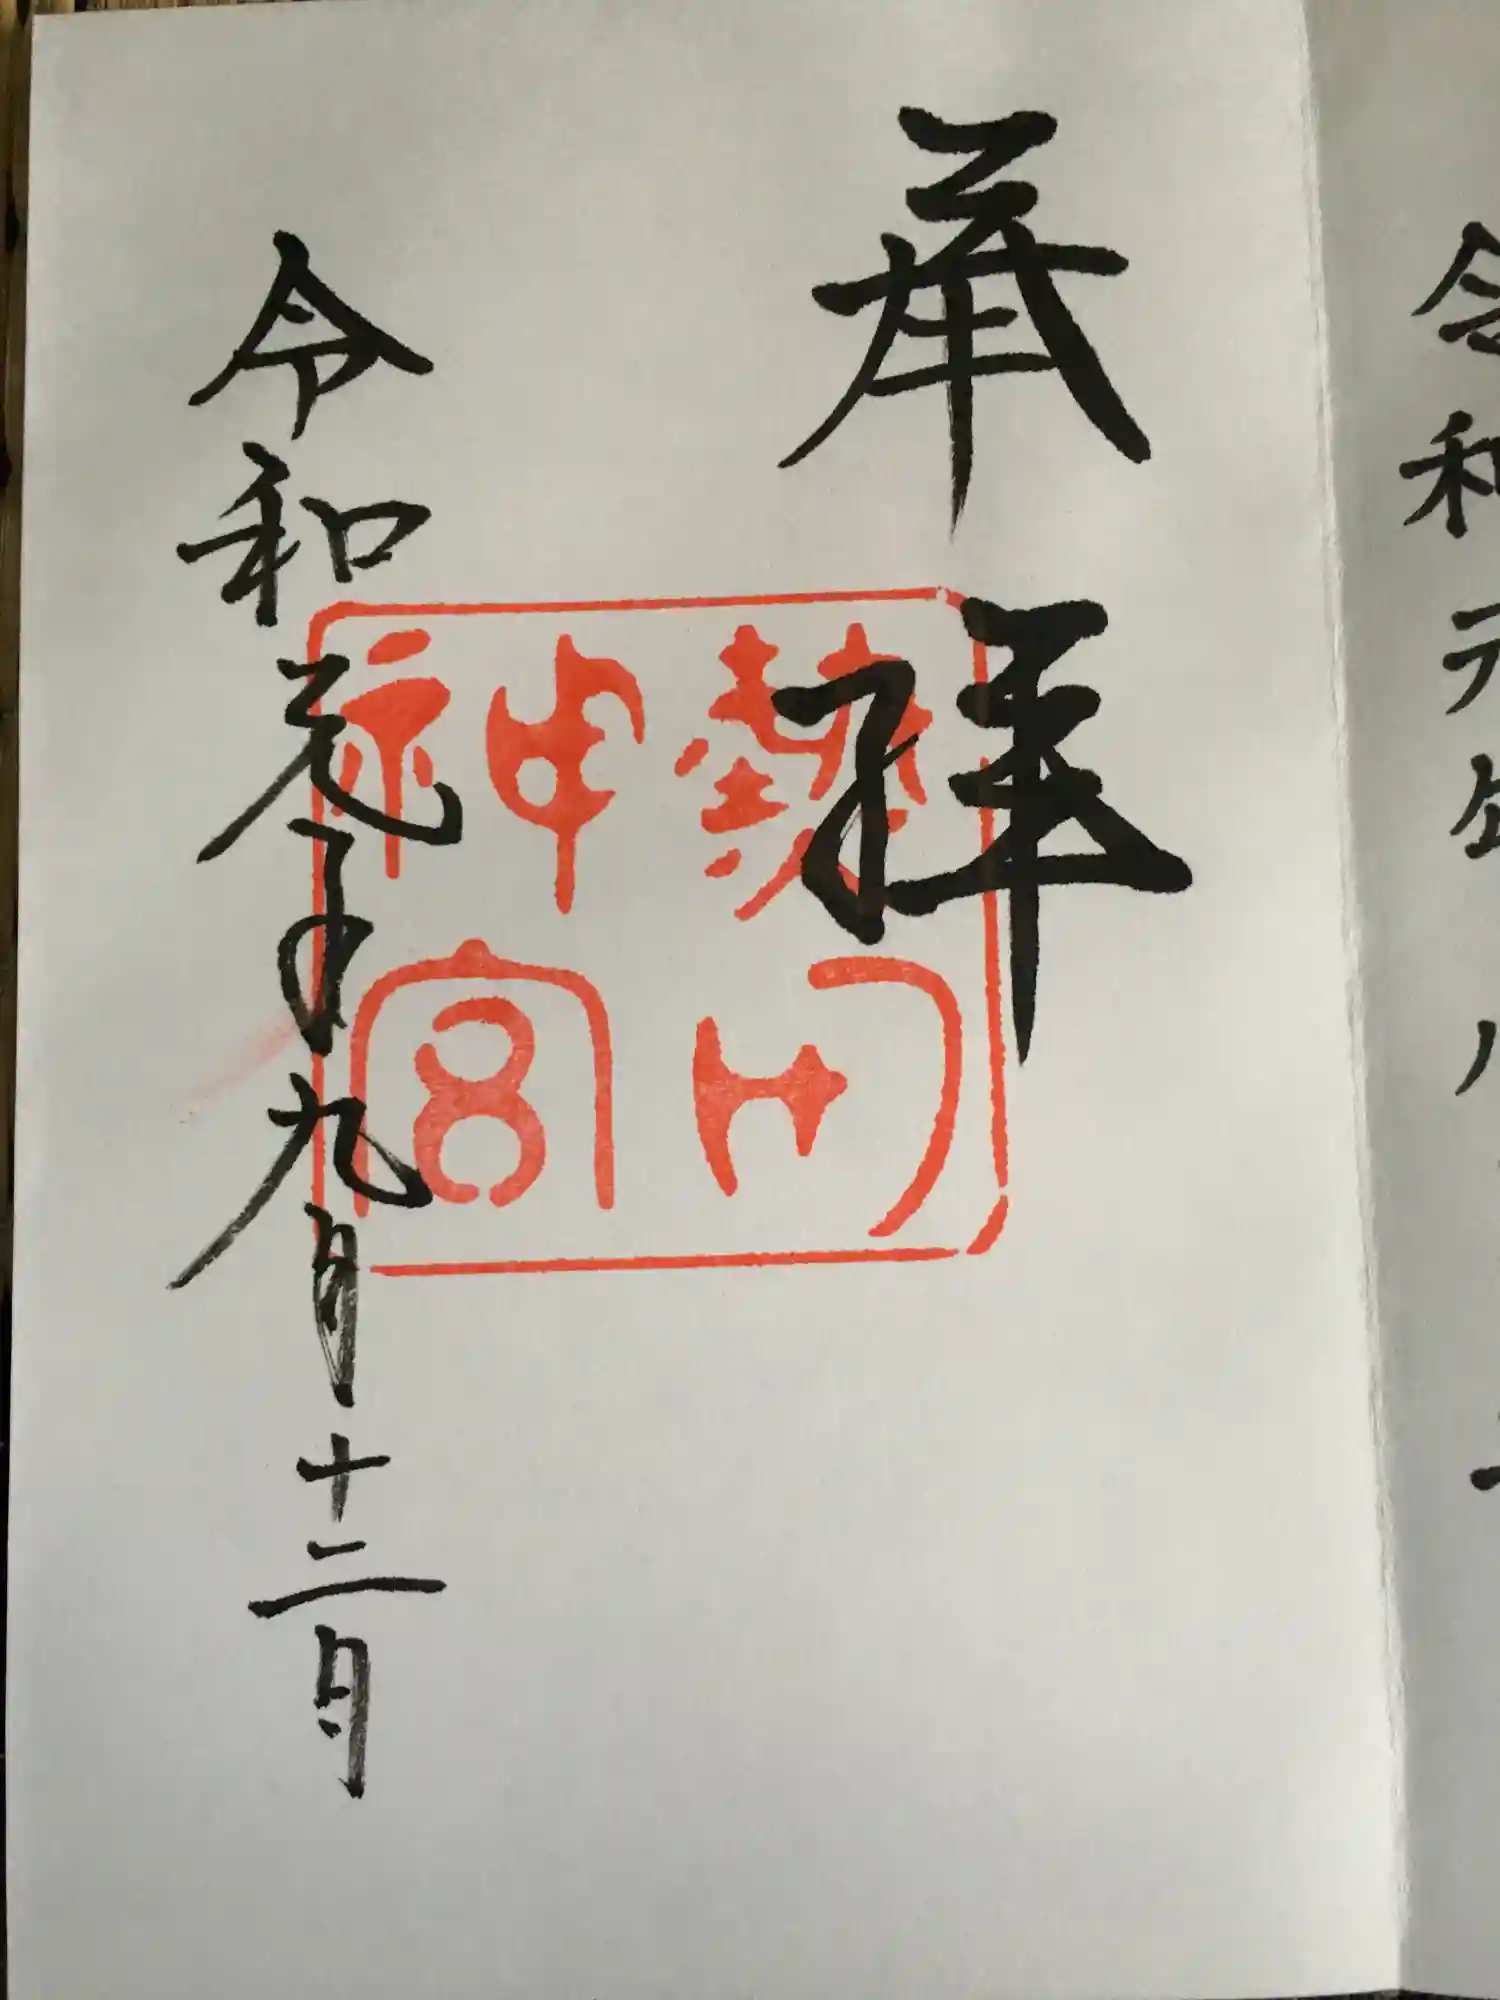 奉拝
熱田
神宮
令和元年九月十二日
令和元年八